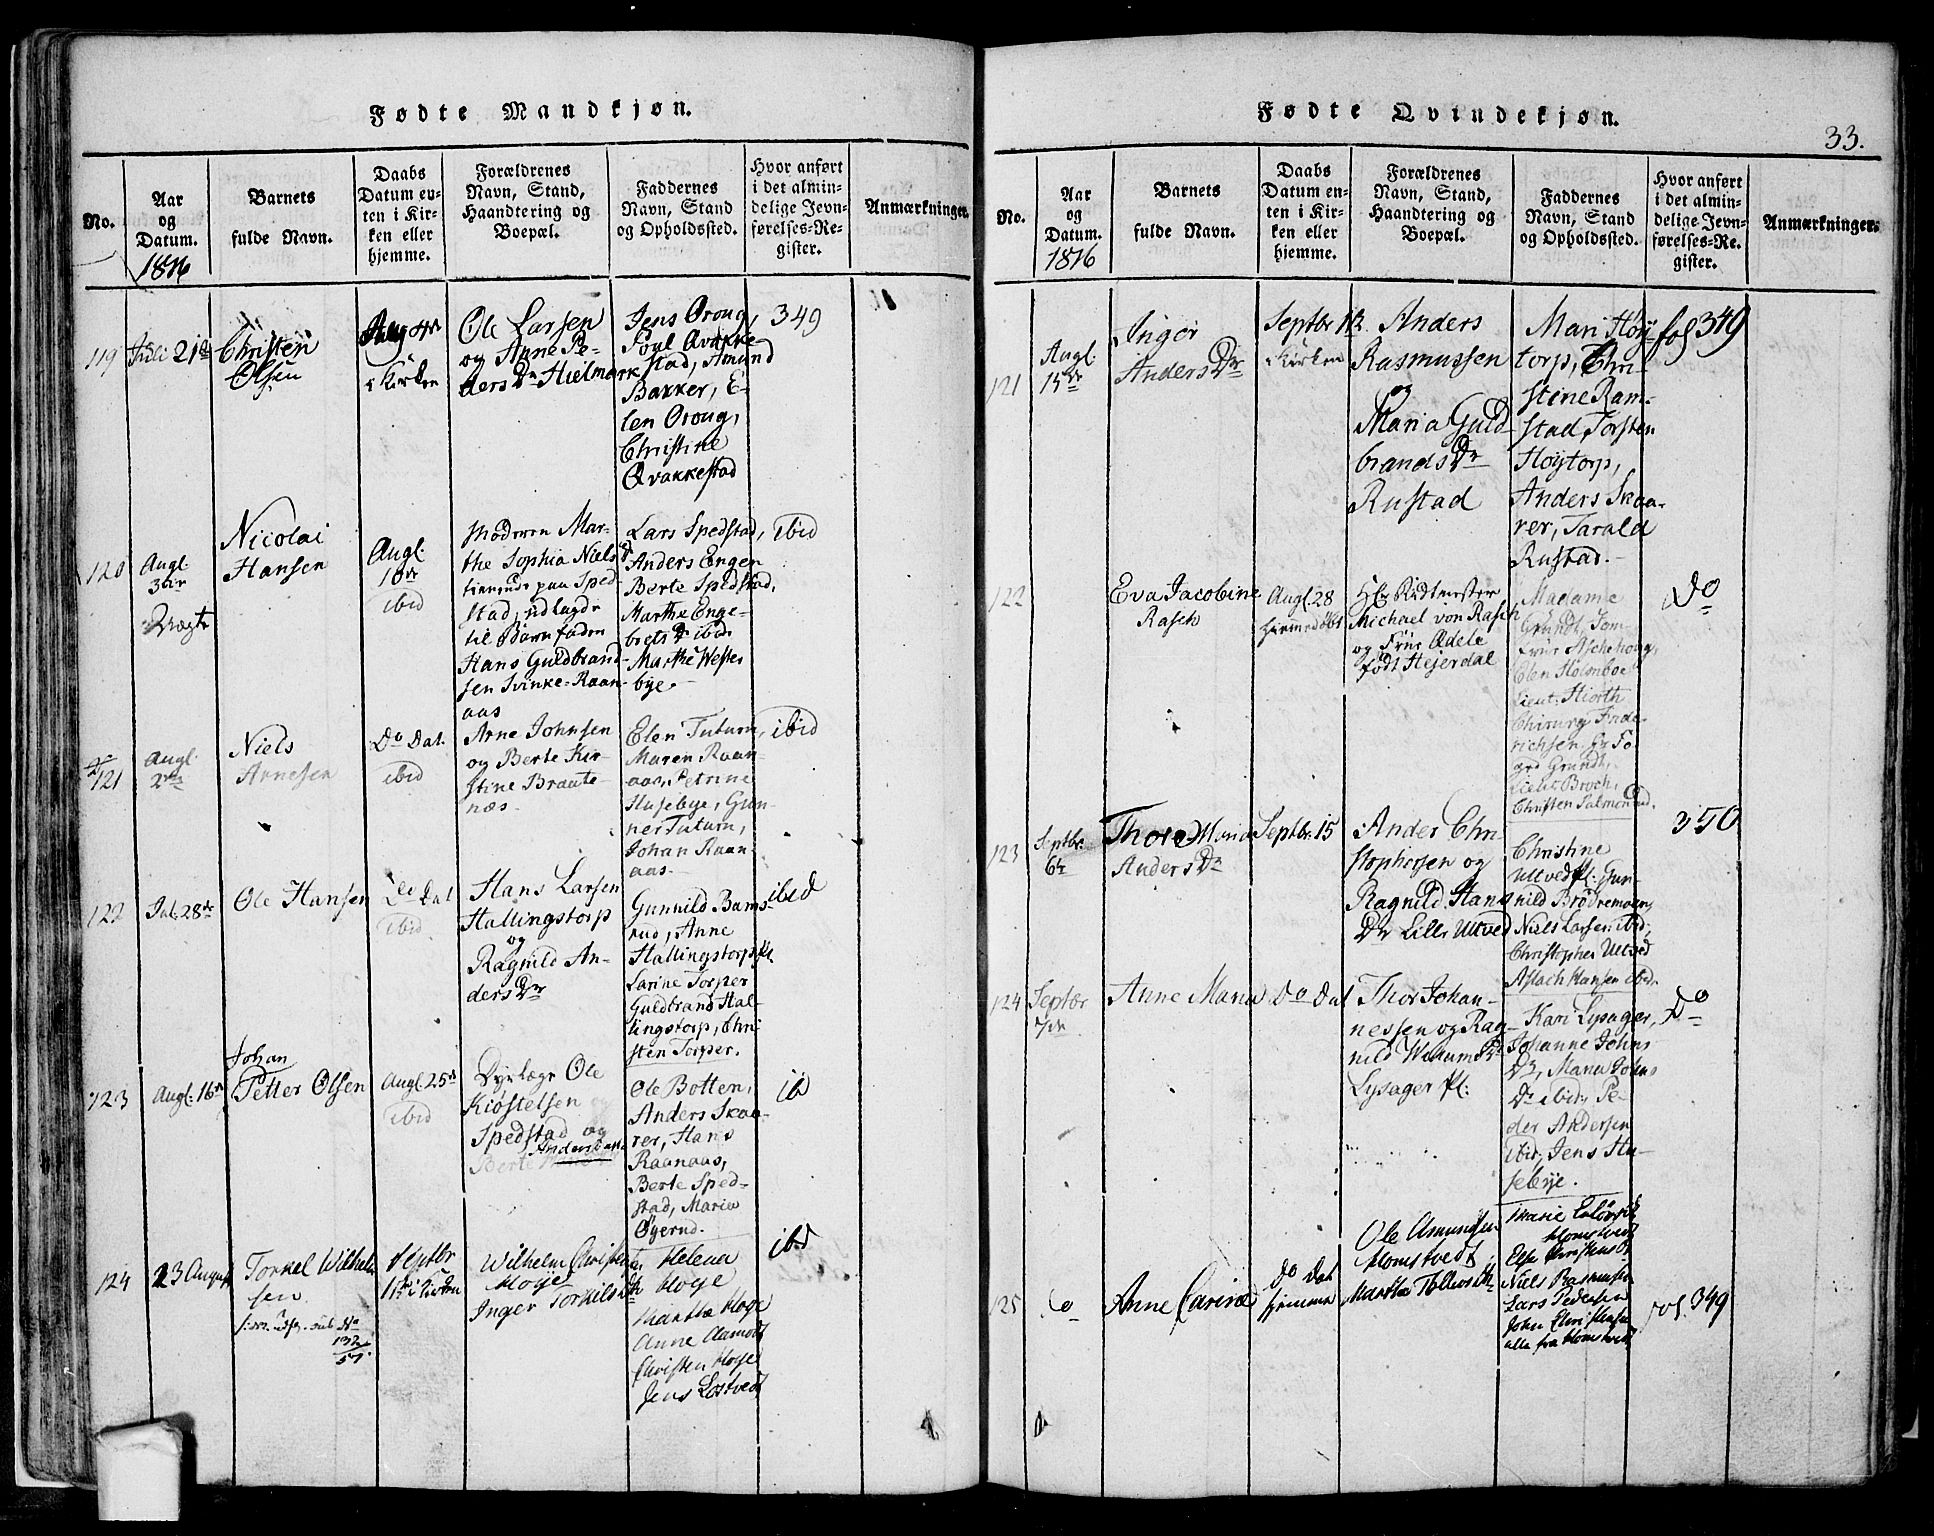 Fødte Mandkjøn.
No.
Aar
og
Datum.
1816
Barnets
fulde Navn.
Daabs
Datum en-
ten i Kir-
ken eller
hjemme.
Forældrenes
Navn, Stand,
Haandtering og
Boepæl.
Faddernes
Navn, Stand
og Opholdssted.
Hvor anført
i det almin-
delige Jevn-
førelses-Re-
gister.
Anmærkninger.
119
Juli 21de
Christen
Olsen
Aug 4de
i Kirken
Ole Larsen
og Anne Pe-
ders Dr Hielmark
Jens Oroug,
Poul Qvakke-
stad, Amund
Bakker, E-
len Oroug,
Christine
Qvakkestad
349
120
Augl.
3die
Uægte
Nicolai
Hansen
Augl.
18de
ibid
Moderen Mar-
the Sophia Niels D
tienende paa Sped-
stad, udlagde
til Barnfader
Hans Guldbrand-
sen Svinke-Raan-
aas
Lars Spedstad,
Anders Engen
Berte Spedstad,
Marthe Enge-
brets Dr ibid
Marthe Wester
bye.
ibid
121
Augl.
2den
Niels
Arnesen
Do Dat.
ibid
Arne Johnsen
og Berte Kir-
stine Braate-
næs.
Elen Tuturn,
Maren Raan-
aas, Petrine
Husebye, Gun-
ner Tuturn,
Johan Raan-
aas.
ibid
122
Jul. 28de
Ole Hansen
Do Dat
ibid
Hans Larsen
Hallingstorp
og
Ragnild An-
ders Dr
Gunnild Bams-
rud, Anne
Hallingstorp Pl.
Larine Torper
Guldbrand Hal-
lingstorp, Chri-
sten Torper.
ibid
123
Augl. 16de
Johan
Petter Olsen
Augl. 25de
ibid
Dyrlæge Ole
Kiøstelsen
Spedstad og
Berte
Ole Botten,
Anders Skaa-
rer, Hans
Raanaas,
Berte Sped-
stad, Maria
Øgernd.
ib
124
23 August
Torkel Wilhelm
sen.
132
57.
Septbr
i Kirken
Wilhelm Christen
Hoye
Inger Torkilsdtr
Helena
Hoge
Marthe Hoge
Anne Aamodt
Christen Hoge
Jens Løstvedt
ibd
Fødte Qvindekjøn.
33.
No.
Aar
og
Datum.
1816
Barnets
fulde Navn.
Daabs
Datum en-
ten i Kir-
ken eller
hjemme.
Forældrenes
Navn, Stand,
Haandtering og
Boepæl.
Faddernes
Navn, Stand
og Opholdssted.
Hvor anført
i det almin-
delige Jevn-
førelses-Re-
gister.
Anmærkninger.
121
Augl.
15de
Inger
Anders Dr
Septbr 1ste
i Kirken
Anders
Rasmussen
og
Maria Guld-
brands Dr
Rustad
Mari Høy-
torp, Chri-
stine Ram-
stad, Torsten
Høytorp,
Anders Skaa-
rer, Tarald
Rustad.
fol 349
122
Eva Jacobine
Rasch
Augl. 28
Hiemmedøbt
Hr Ridtmester
Michael von Rasch
og Frue Adele
født Hejerdal
Madame
Grundt, Jom-
frue Aschehoug,
Elen Holmboe
Lieut: Hiorth
Chirurg Frede-
richsen,
Grundt,
Lieut Broch,
Christen Salmonrud.
Do
123
Septbr.
6te
Thore Maria
Anders Dr
Septbr. 15
Ander Chri-
stophersen og
Ragnild Hans
Dr Lille Ultved
Christine
Ultved Pl. Gun-
nild Brødremoen,
Niels Larsen ibid,
Christopher Ultved
Aslach Hansen ibid.
350
124
Septbr
7de
Anne Maria
Do Dat
Thor Johan-
nessen og Rag-
nild Wilum Dr
Lysager Pl:
Kari Lysager,
Johanne Johns
Dr, Maria Johns
Dr ibid, Pe-
der Andersen
ibid, Jens Hu-
sebye.
Do
125
Do
Anne Carine
Do Dat
hjemme
Ole Amundsen
Homstvedt
Martha Tollevsdtr
Marie
Homstvedt
Else Christensdr
Niels Rasmussen
Lars Pedersen
John Christensen
alle fra Homstvedt
fol. 349